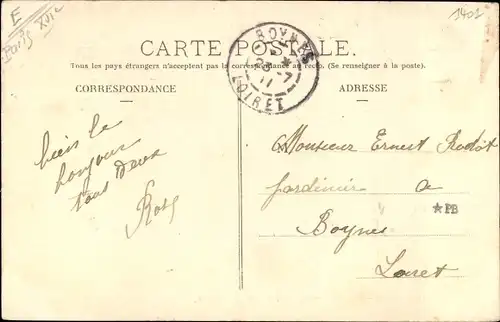 E
Paris XVIe
1402
CARTE POSTALE.
Tous les pays étrangers n'acceptent pas la correspondance au recto. (Se renseigner à la poste).
BOYNES
LOIRET
CORRESPONDANCE
ADRESSE
bien le
bonjour
tous deux
Monsieur Ernest
jardinier a
★PB
Boynes
Loiret